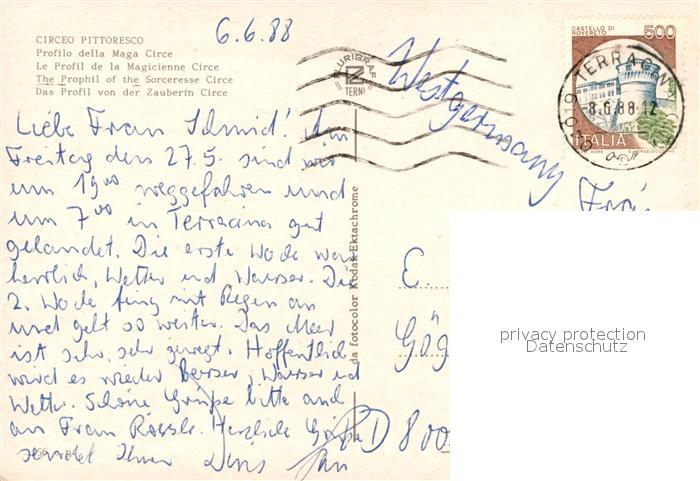 CIRCEO PITTORESCO
Profilo della Maga Circe
Le Profil de la Magicienne Circe
The Prophil of the Sorceresse Circe
Das Profil von der Zauberin Circe
6.6.88
Liebe Frau Schmid! Am
Freitag den 27.5. sind wir
um 19⁰⁰ weggefahren und
um 7⁰⁰ in Terracina gut
gelandet. Die erste Woche war
herrlich, Wetter und Wasser. Die
2. Woche fing mit Regen an
und geht so weiter. Das Meer
ist sehr, sehr bewegt. Hoffentlich
wird es wieder besser, Wasser und
Wetter. Schöne Grüße bitte auch
an Frau Rössle. Herzliche Grüße
sendet Ihnen
PLURIGRAF
TERNI
da fotocolor Kodak Ektachrome
CASTELLO DI
ROVERETO
500
ITALIA
ROMA
TERRACINA
8.6.88-12
Westgermany
E.
Gög
D 800
privacy protection
Datenschutz